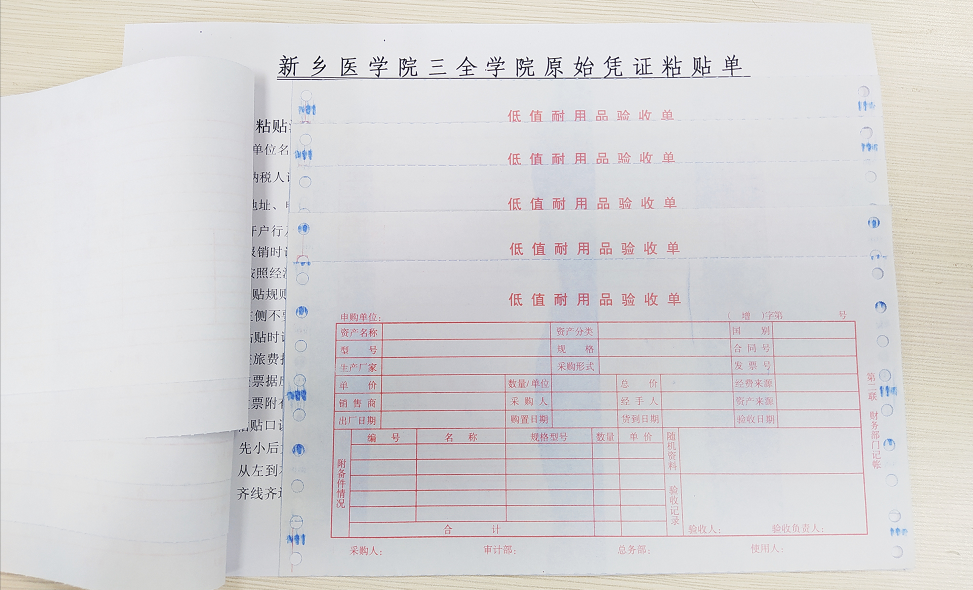 新乡医学院三全学院原始凭证粘贴单
粘贴
单位名
纳税人
地址、
开户行
报销时
按照经
贴规
侧不
粘贴时
旅费
票据
票附
粘贴口
先小后
从左到
齐线齐
低值耐用品验收单
低值耐用品验收单
低值耐用品验收单
低值耐用品验收单
低值耐用品验收单
申购单位: ( 增 )字第 号
资产名称 资产分类 国 别
型 号 规 格 合同号
生产厂家 采购形式 发票号
单 价 数量/单位 总 价 经费来源
销售商 采购人 经手人 资产来源
出厂日期 购置日期 货到日期 验收日期
附备件情况
编 号 名 称 规格型号 数量 单价
合 计
随机资料
验收记录
验收人: 验收负责人:
采购人: 审计部: 总务部: 使用人:
第二联 财务部门记帐